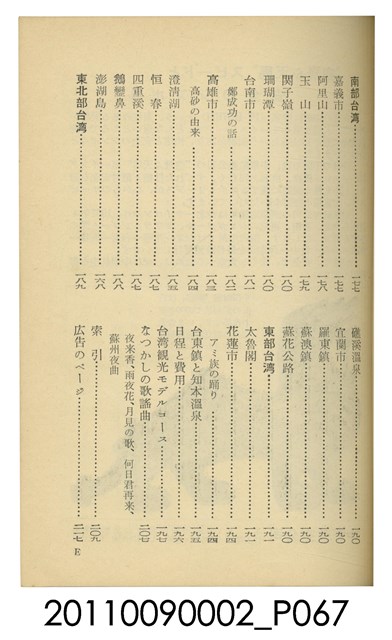 南部台湾……一七七
嘉義市……一七七
阿里山……一七八
玉山……一八〇
関子嶺……一八〇
珊瑚潭……一八〇
台南市……一八一
鄭成功の話……一八二
高雄市……一八三
高砂の由来……一八四
澄清湖……一八五
恒春……一八七
四重溪……一八八
鵝鑾鼻……一八八
澎湖島……一八八
東北部台湾……一八九
礁溪溫泉……一九〇
宜蘭市……一九〇
羅東鎮……一九〇
蘇澳鎮……一九〇
蘇花公路……一九〇
東部台湾……一九一
太魯閣……一九一
花蓮市……一九四
アミ族の踊り……一九四
台東鎮と知本溫泉……一九五
日程と費用……一九六
台湾観光モデルコース……一九七
なつかしの歌謡曲……二〇七
夜来香、雨夜花、月見の歌、何日君再来、
蘇州夜曲
索引……二〇九
広告のページ……二一七
E
20110090002_P067